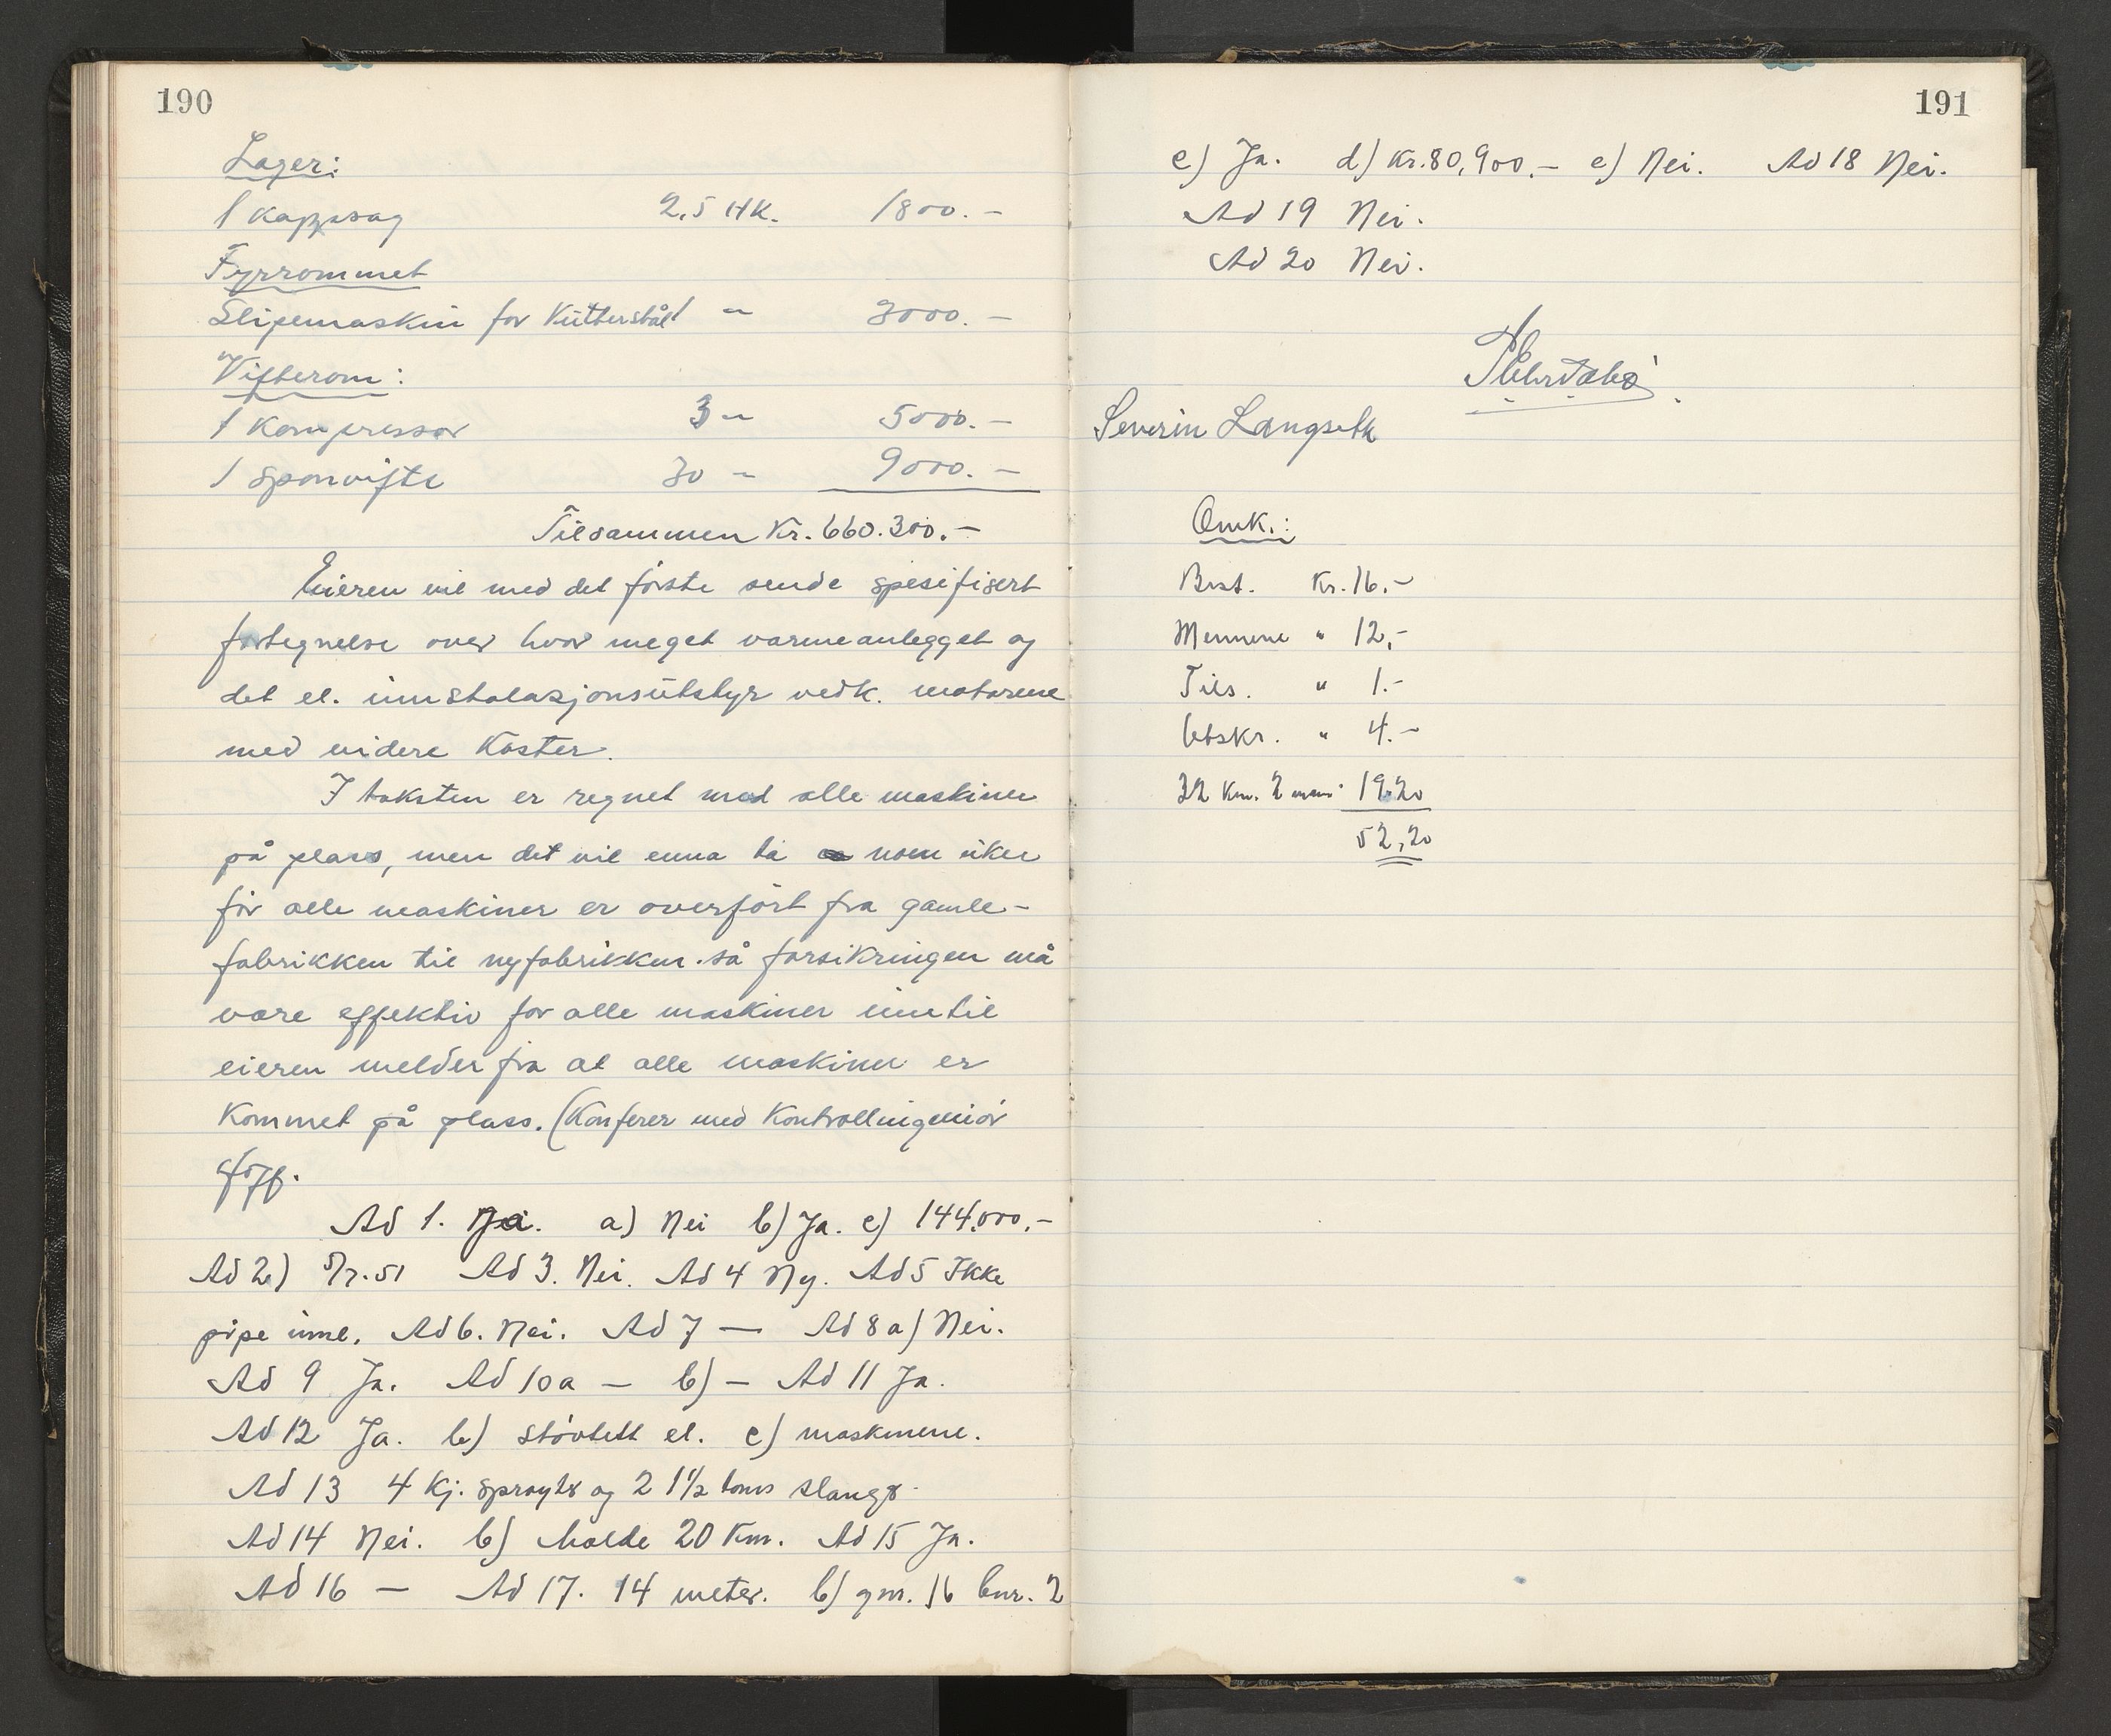 190
Lager:
1 Kappsag 2,5 HK. 1800.-
Fyrrommet
Slipemaskin for Kutterstål - " 3000.-
Vifterom:
1 Kompressor 3 " 5000.-
1 Sponvifte 30 " 9000.-
Tilsammen Kr. 660.300.-
Eieren vil med det første sende spesifisert
fortegnelse over hvor meget varmeanlegget og
det el. innstalasjonsutstyr vedk. motorene
med videre koster.
I taksten er regnet med alle maskiner
på plass, men det vil enna ta noen uker
før alle maskiner er overført fra gamle-
fabrikken til nyfabrikken. så forsikringen må
være effektiv for alle maskiner inntil
eieren melder fra at alle maskiner er
kommet på plass. (Konferer med Kontrollingeniør
Ad 1. a) Nei b) Ja. c) 144.000.-
Ad 2) 5/7.51 Ad 3. Nei. Ad 4 Ny. Ad 5 Ikke
pipe inne. Ad 6. Nei. Ad 7 — Ad 8 a) Nei.
Ad 9 Ja. Ad 10a — b) — Ad 11 Ja.
Ad 12 Ja. b) Støvtett el. c) maskinene.
Ad 13 4 Kj. sprøyter og 2 1½ toms slanger.
Ad 14 Nei. b) Molde 20 Km. Ad 15 Ja.
Ad 16 — Ad 17. 14 meter. b) gnr. 16 bnr. 2
191
c) Ja. d) Kr. 80,900.- e) Nei. Ad 18 Nei.
Ad 19 Nei.
Ad 20 Nei.
Severin Langseth
Omk.:
Best. Kr. 16.-
Mennene " 12,-
Tils. " 1.-
Utskr. " 4.-
32 Km. 2 19.20
52,20